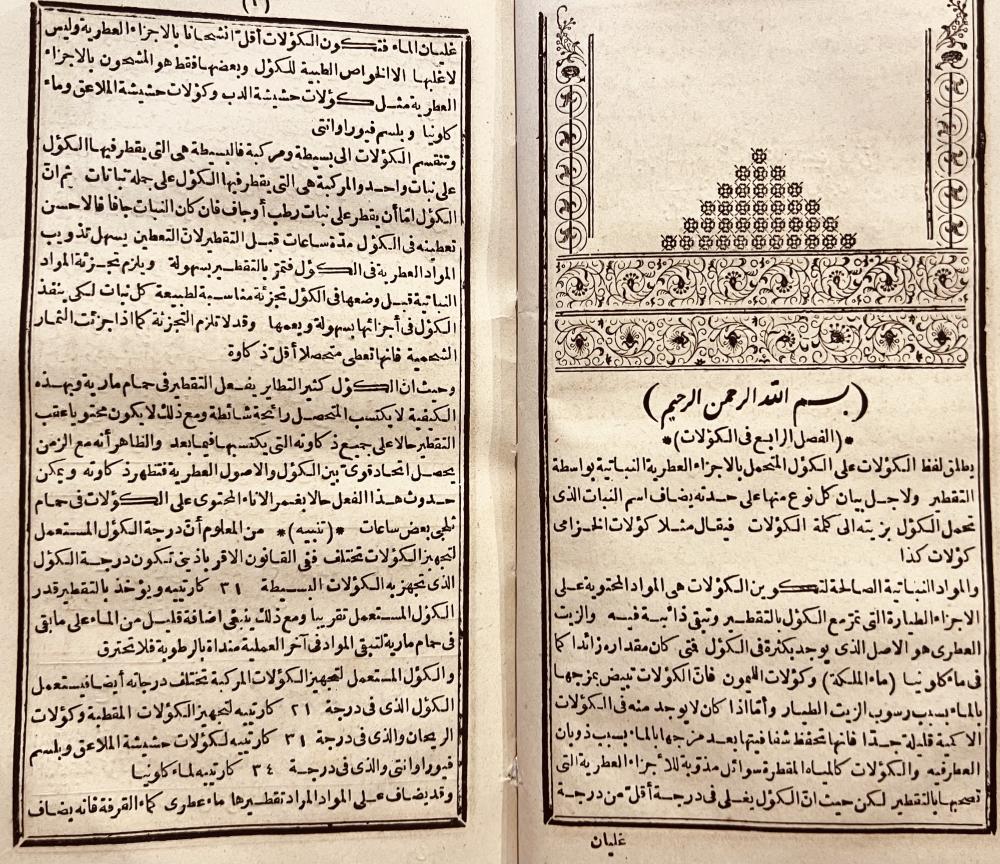 (بسم الله الرحمن الرحيم)
*(الفصل الرابع فى الكؤلات)*
يطلق لفظ الكؤلات على الكؤل المتحمل بالاجزاء العطرية النباتية بواسطة
التقطير ولاجل بيان كل نوع منها على حدته يضاف اسم النبات الذى
تحمل الكؤل بزيته الى كلمة الكؤلات فيقال مثلا كؤلات الخزامى
كؤلات كذا
والمواد النباتية الصالحة لتكوين الكؤلات هى المواد المحتوية على
الاجزاء الطيارة التى تمر مع الكؤل بالتقطير وتبقى ذائبة فيه والزيت
العطرى هو الاصل الذى يوجد بكثرة فى الكؤل فتى كان مقداره زائدا كما
فى ماء كاونيا (ماء الملكة) وكؤلات الليمون فانّ الكؤلات تبيض بمزجها
بالماء بسبب رسوب الزيت الطيار وأمّا اذا كان لا يوجد منه فى الكؤلات
الا كمية قليلة جدّا فانها تحفظ شفافيتها بعد مزجها بالماء بسبب ذوبان
العطر فيه والكؤلات كالمياه المقطرة سوائل مذوبة للاجزاء العطرية التى
تصحبها بالتقطير لكن حيث انّ الكؤل يغلى فى درجة أقل من درجة
غليان
(٢)
غليان الماء فتكون الكؤلات أقل انشحانا بالاجزاء العطرية وليس
لاغلبها الا الخواص الطبية للكؤل وبعضها فقط هو المشحون بالاجزاء
العطرية مثل كؤلات حشيشة الدب وكؤلات حشيشة الملاعق وماء
كاونيا وبلسم فيوراوانتى
وتنقسم الكؤلات الى بسيطة ومركبة فالبسيطة هى التى يقطر فيها الكؤل
على نبات واحد والمركبة هى التى يقطر فيها الكؤل على جملة نباتات ثم انّ
الكؤل امّا أن يقطر على نبات رطب أو جاف فان كان النبات جافا فالاحسن
تعطينه فى الكؤل مدّة ساعات قبل التقطير لانّ التعطين يسهل تذويب
المواد العطرية فى الكؤل فتمرّ بالتقطير بسهولة ويلزم تجزئة المواد
النباتية قبل وضعها فى الكؤل تجزئة مناسبة لطبيعة كل نبات لكى ينفذ
الكؤل فى أجزائها بسهولة ويعمها وقد لا تلزم التجزئة كما اذا جزئت الثمار
الشحمية فانها تعطى متحصلا أقل ذكاوة
وحيث انّ الكؤل كثير التطاير يفعل التقطير فى حمام مارية وبهذه
الكيفية لا يكتسب المتحصل رائحة شائطة ومع ذلك لا يكون محتويا عقب
التقطير حالا على جميع ذكاوته التى يكتسبها فيما بعد والظاهر أنه مع الزمن
يحصل اتحاد قوى بين الكؤل والاصول العطرية فتظهر ذكاوته ويمكن
حدوث هذا الفعل حالا بغمر الاناء المحتوى على الكؤلات فى حمام
ثلجى بعض ساعات *(تنبيه)* من المعلوم أنّ درجة الكؤل المستعمل
لتجهيز الكؤلات تختلف ففى القانون الاقرباذينى تكون درجة الكؤل
الذى تجهز به الكؤلات البسيطة ٣١ كارتييه ويؤخذ بالتقطير قدر
الكؤل المستعمل تقريبا ومع ذلك ينبغى اضافة قليل من الماء على ما بقى
فى حمام مارية لتبقى المواد فى آخر العملية منداة بالرطوبة فلا تحترق
والكؤل المستعمل لتجهيز الكؤلات المركبة تختلف درجاته أيضا فيستعمل
الكؤل الذى فى درجة ٢١ كارتييه لتجهيز الكؤلات المقطبة وكؤلات
الريحان والذى فى درجة ٣١ كارتييه لكؤلات حشيشة الملاعق وبلسم
فيوراوانتى والذى فى درجة ٣٤ كارتييه لماء كاونيا
وقد يضاف على المواد المراد تقطيرها ماء عطرى كماء القرفة فانه يضاف